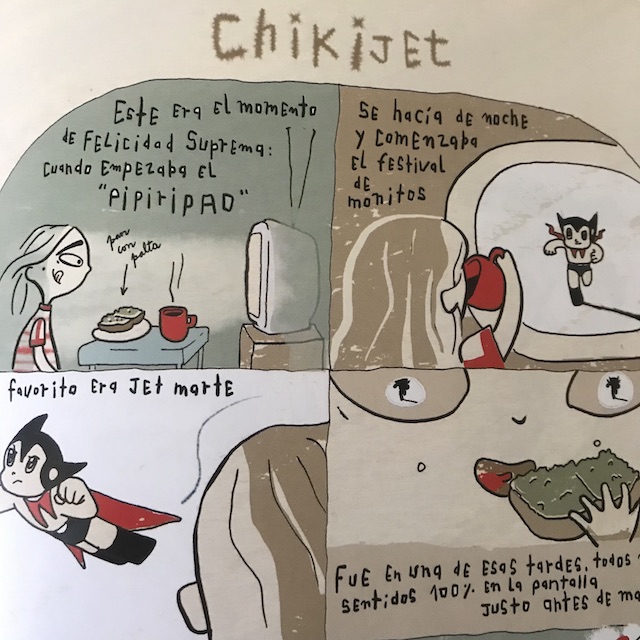 Chikijet
Este era el momento
de felicidad suprema:
cuando empezaba el
"PIPIRIPAO"
pan
con
palta
Se hacía de noche
y comenzaba
el festival
de
monitos
favorito era Jet Marte
Fue en una de esas tardes, todos
sentidos 100% en la pantalla
justo antes de